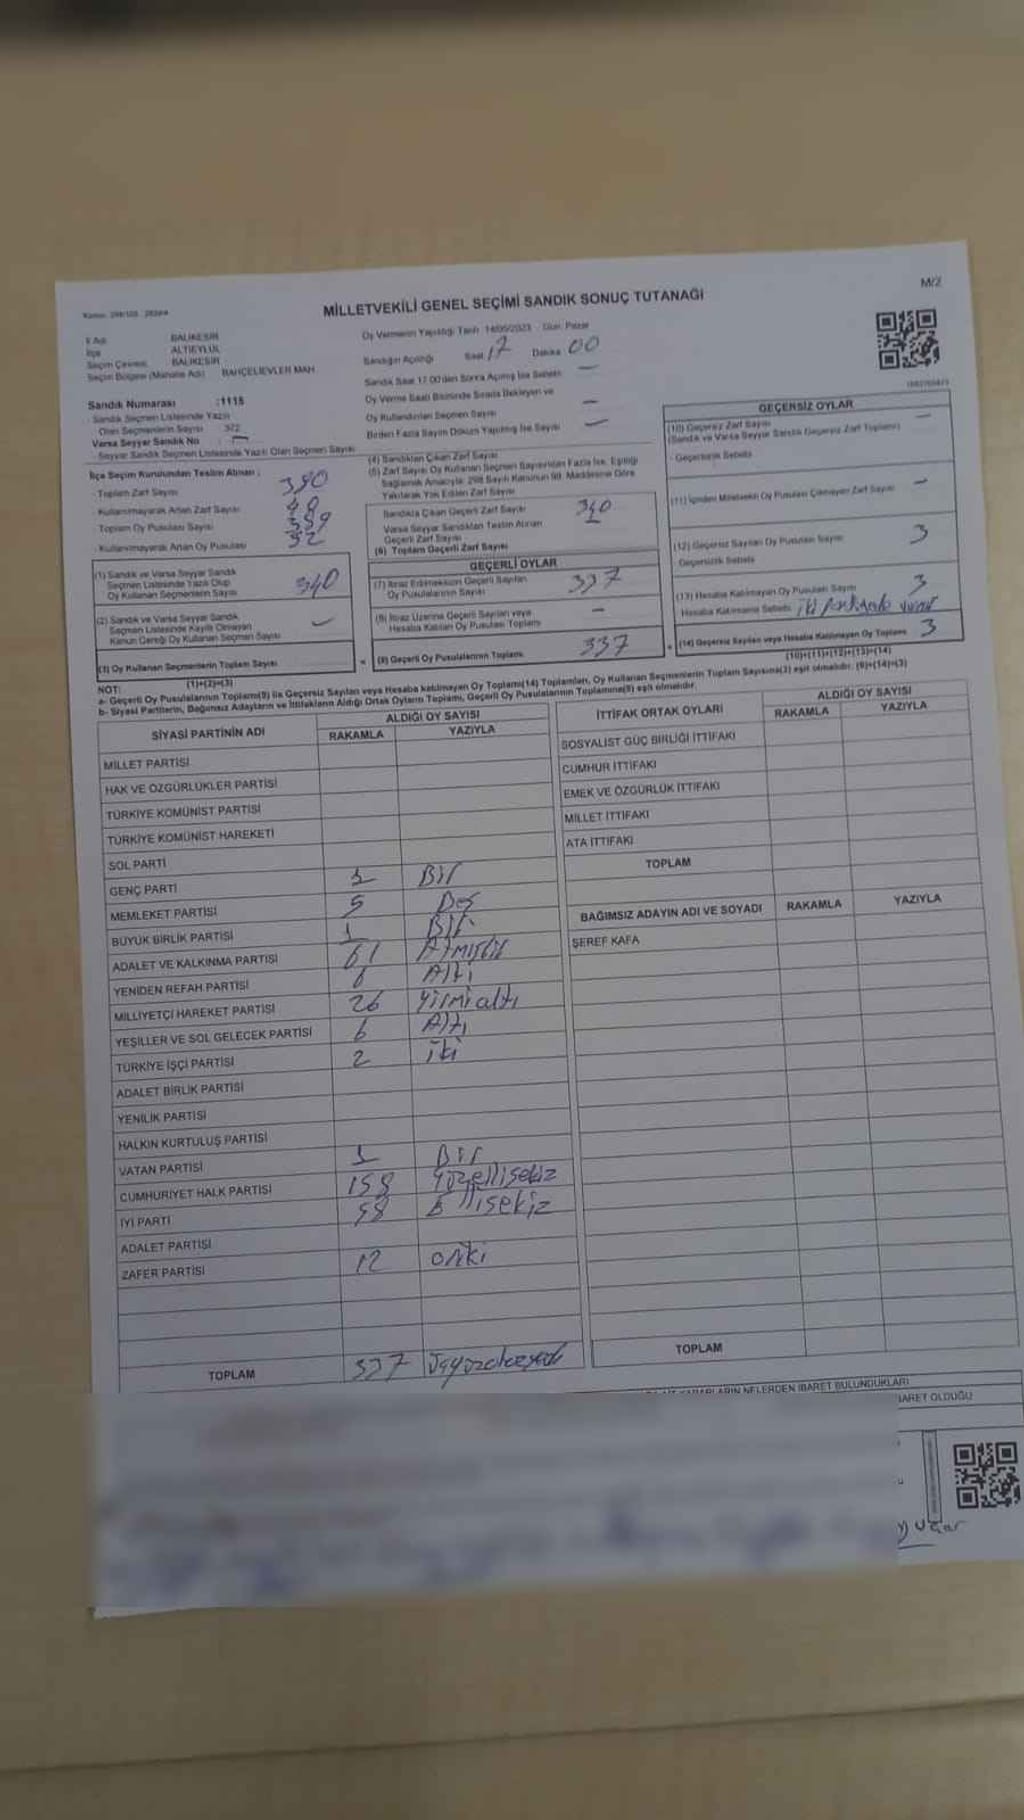 M/2
MİLLETVEKİLİ GENEL SEÇİMİ SANDIK SONUÇ TUTANAĞI
İl Adı BALIKESİR
İlçe ALTIEYLÜL
Seçim Çevresi BALIKESİR
Seçim Bölgesi (Mahalle Adı) BAHÇELİEVLER MAH.
Sandık Numarası :1115
Sandık Seçmen Listesinde Yazılı
Olan Seçmenlerin Sayısı 372
Varsa Seyyar Sandık No : —
Seyyar Sandık Seçmen Listesinde Yazılı Olan Seçmen Sayısı
Oy Vermenin Yapıldığı Tarih 14/05/2023 Gün: Pazar
Sandığın Açılışı Saat 17 Dakika 00
Sandık Saat 17.00'den Sonra Açılmış İse Sebebi —
Oy Verme Saati Bitiminde Sırada Bekleyen ve
Oy Kullandırılan Seçmen Sayısı —
Birden Fazla Sayım Döküm Yapılmış İse Sayısı —
İlçe Seçim Kurulundan Teslim Alınan :
- Toplam Zarf Sayısı 390
- Kullanılmayarak Artan Zarf Sayısı
- Toplam Oy Pusulası Sayısı 389
- Kullanılmayarak Artan Oy Pusulası
(1) Sandık ve Varsa Seyyar Sandık
Seçmen Listesinde Yazılı Olup
Oy Kullanan Seçmenlerin Sayısı 340
(2) Sandık ve Varsa Seyyar Sandık
Seçmen Listesinde Kayıtlı Olmayan
Kanun Gereği Oy Kullanan Seçmen Sayısı —
(3) Oy Kullanan Seçmenlerin Toplam Sayısı
(1)+(2)=(3)
(4) Sandıktan Çıkan Zarf Sayısı
(5) Zarf Sayısı Oy Kullanan Seçmen Sayısından Fazla İse, Eşitliği
Sağlamak Amacıyla; 298 Sayılı Kanunun İlgili Maddesine Göre
Yakılarak Yok Edilen Zarf Sayısı
Sandıkta Çıkan Geçerli Zarf Sayısı 340
Varsa Seyyar Sandıktan Teslim Alınan
Geçerli Zarf Sayısı
(6) Toplam Geçerli Zarf Sayısı
GEÇERLİ OYLAR
(7) İtiraz Edilmeksizin Geçerli Sayılan
Oy Pusulalarının Sayısı 337
(8) İtiraz Üzerine Geçerli Sayılan veya
Hesaba Katılan Oy Pusulası Toplamı —
(9) Geçerli Oy Pusulalarının Toplamı 337
GEÇERSİZ OYLAR
(10) Geçersiz Zarf Sayısı —
(Sandık ve Varsa Seyyar Sandık Geçersiz Zarf Toplamı)
- Geçersizlik Sebebi
(11) İçinden Milletvekili Oy Pusulası Çıkmayan Zarf Sayısı —
(12) Geçersiz Sayılan Oy Pusulası Sayısı 3
Geçersizlik Sebebi
(13) Hesaba Katılmayan Oy Pusulası Sayısı 3
Hesaba Katılmama Sebebi
(14) Geçersiz Sayılan veya Hesaba Katılmayan Oy Toplamı 3
(10)+(11)+(12)+(13)=(14)
NOT:
a- Geçerli Oy Pusulalarının Toplamı(9) ile Geçersiz Sayılan veya Hesaba katılmayan Oy Toplamı(14) Toplamları, Oy Kullanan Seçmenlerin Toplam Sayısına(3) eşit olmalıdır. (9)+(14)=(3)
b- Siyasi Partilerin, Bağımsız Adayların ve İttifakların Aldığı Ortak Oyların Toplamı, Geçerli Oy Pusulalarının Toplamına(9) eşit olmalıdır.
SİYASİ PARTİNİN ADI ALDIĞI OY SAYISI
RAKAMLA YAZIYLA
MİLLET PARTİSİ
HAK VE ÖZGÜRLÜKLER PARTİSİ
TÜRKİYE KOMÜNİST PARTİSİ
TÜRKİYE KOMÜNİST HAREKETİ
SOL PARTİ
GENÇ PARTİ 1 Bir
MEMLEKET PARTİSİ 5 Beş
BÜYÜK BİRLİK PARTİSİ 1 Bir
ADALET VE KALKINMA PARTİSİ 61 Atmışbir
YENİDEN REFAH PARTİSİ 6 Altı
MİLLİYETÇİ HAREKET PARTİSİ 26 Yirmialtı
YEŞİLLER VE SOL GELECEK PARTİSİ 6 Altı
TÜRKİYE İŞÇİ PARTİSİ 2 iki
ADALET BİRLİK PARTİSİ
YENİLİK PARTİSİ
HALKIN KURTULUŞ PARTİSİ
VATAN PARTİSİ 1 Bir
CUMHURİYET HALK PARTİSİ 158 Yüzellisekiz
İYİ PARTİ 58 Ellisekiz
ADALET PARTİSİ
ZAFER PARTİSİ 12 oniki
TOPLAM 337
İTTİFAK ORTAK OYLARI ALDIĞI OY SAYISI
RAKAMLA YAZIYLA
SOSYALİST GÜÇ BİRLİĞİ İTTİFAKI
CUMHUR İTTİFAKI
EMEK VE ÖZGÜRLÜK İTTİFAKI
MİLLET İTTİFAKI
ATA İTTİFAKI
TOPLAM
BAĞIMSIZ ADAYIN ADI VE SOYADI RAKAMLA YAZIYLA
ŞEREF KAFA
TOPLAM
NELERDEN İBARET BULUNDUKLARI
İBARET OLDUĞU